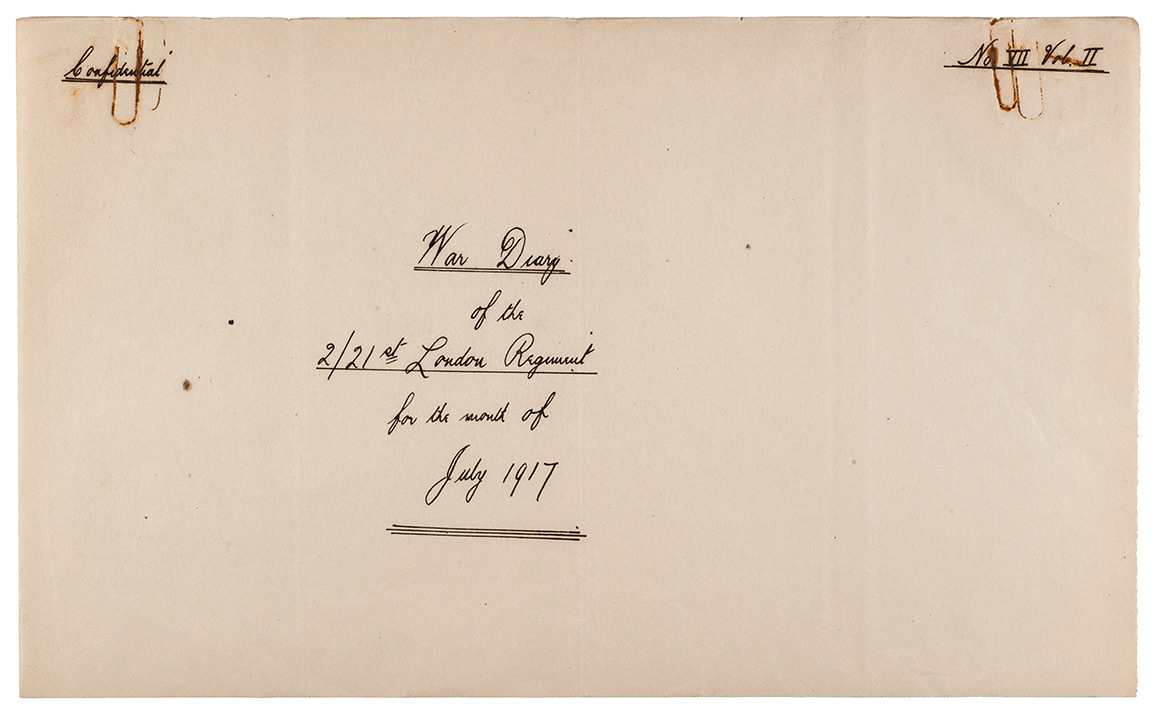 Confidential
No VII Vol. II
War Diary.
of the
2/21st London Regiment
for the month of
July 1917